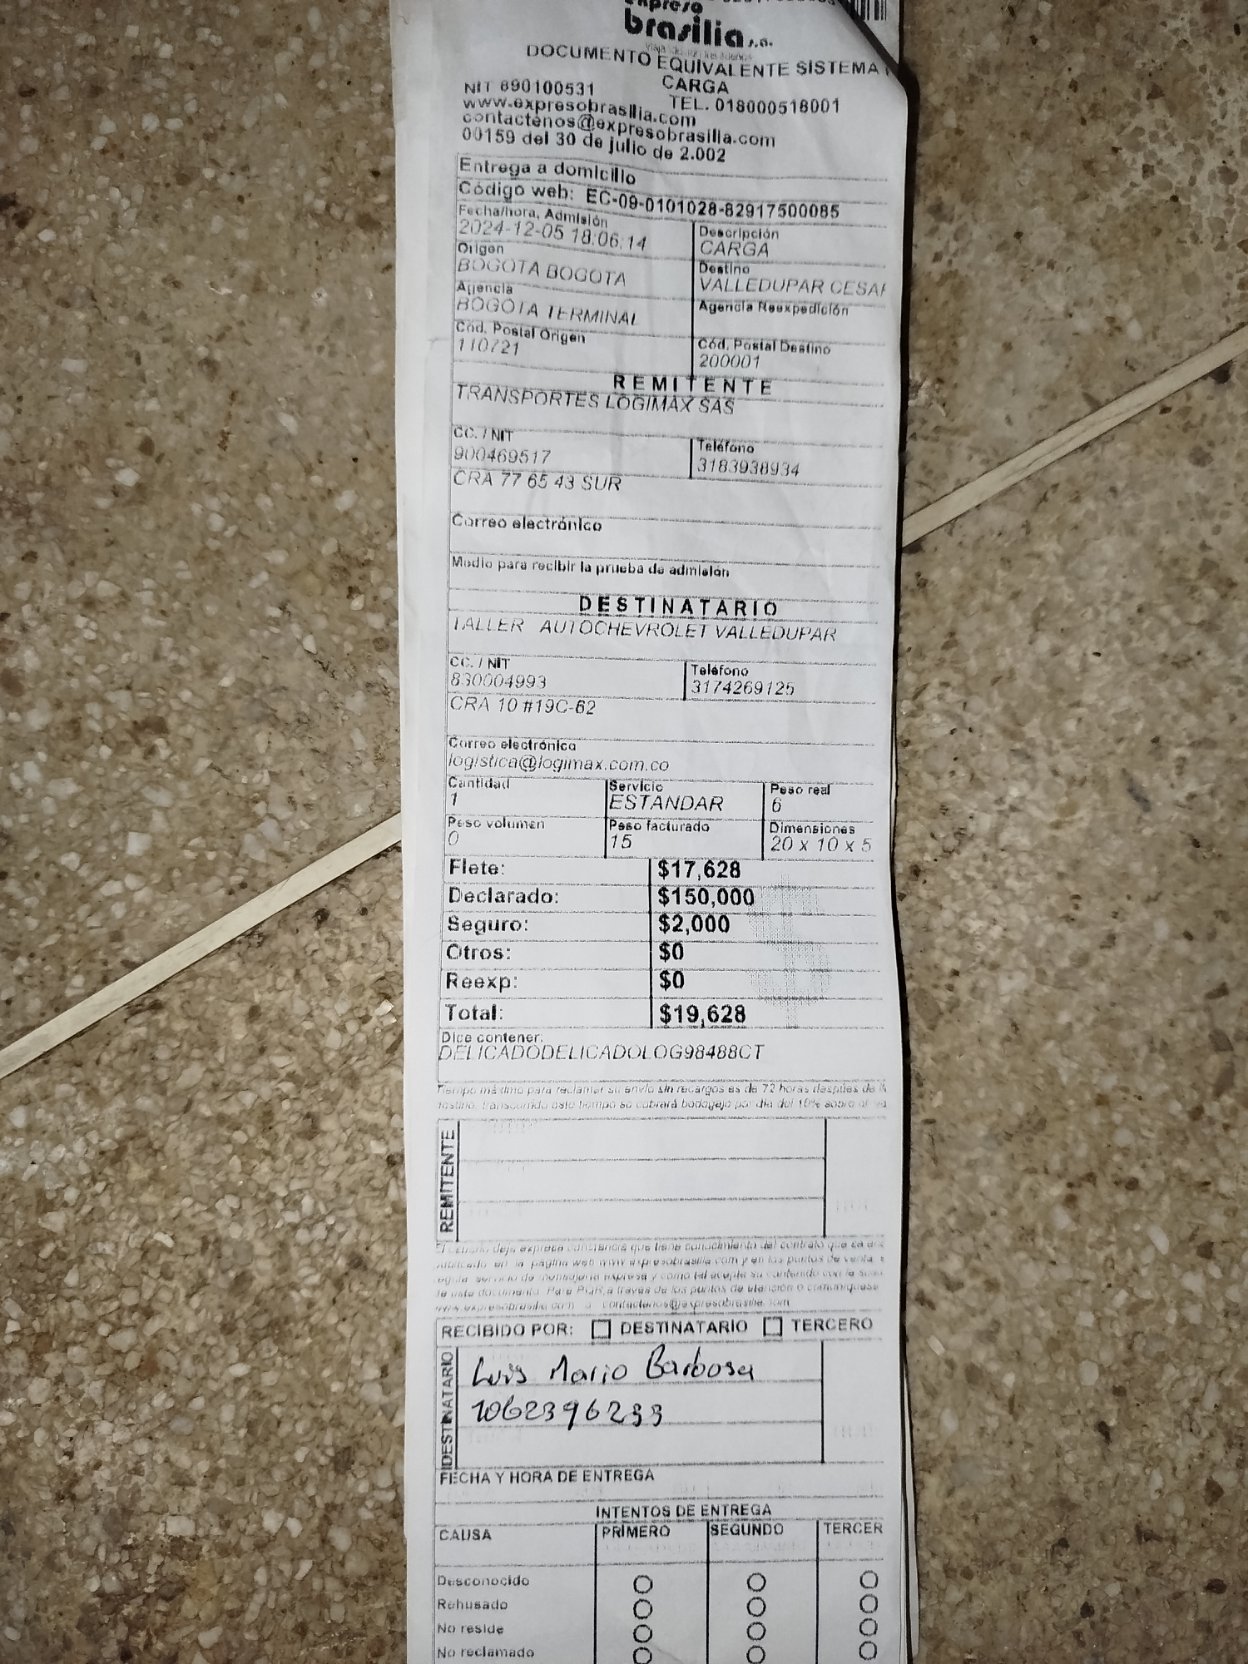 expreso
brasilia s.a.
DOCUMENTO EQUIVALENTE SISTEMA
CARGA
NIT 890100531
TEL. 018000518001
www.expresobrasilia.com
contactenos@expresobrasilia.com
00159 del 30 de julio de 2.002
Entrega a domicilio
Código web: EC-09-0101028-82917500085
Fecha/hora, Admisión
2024-12-05 18:06:14
Descripción
CARGA
Origen
BOGOTA BOGOTA
Destino
VALLEDUPAR CESAR
Agencia
BOGOTA TERMINAL
Agencia Reexpedición
Cód. Postal Origen
110721
Cód. Postal Destino
200001
REMITENTE
TRANSPORTES LOGIMAX SAS
CC. / NIT
900469517
Teléfono
3183938934
CRA 77 65 43 SUR
Correo electrónico
Medio para recibir la prueba de admisión
DESTINATARIO
TALLER AUTOCHEVROLET VALLEDUPAR
CC. / NIT
830004993
Teléfono
3174269125
CRA 10 #19C-62
Correo electrónico
logistica@logimax.com.co
Cantidad
1
Servicio
ESTANDAR
Peso real
6
Peso volumen
0
Peso facturado
15
Dimensiones
20 x 10 x 5
Flete: $17,628
Declarado: $150,000
Seguro: $2,000
Otros: $0
Reexp: $0
Total: $19,628
Dice contener:
DELICADODELICADOLOG98488CT
Tiempo máximo para reclamar su envío sin recargos es de 72 horas después de
transcurrido este tiempo se cobrará bodegaje por día del 10% sobre el
REMITENTE
El usuario deja expresa constancia que tiene conocimiento del contrato que
publicado en la página web www.expresobrasilia.com y en los puntos de venta
servicio de mensajería expresa y como tal acepta su contenido con la
de este documento. Para PQR a través de los puntos de atención o comuníquese
www.expresobrasilia.com o contactenos@expresobrasilia.com
RECIBIDO POR: DESTINATARIO TERCERO
DESTINATARIO
Luis Mario Barbosa
1062396299
FECHA Y HORA DE ENTREGA
INTENTOS DE ENTREGA
CAUSA PRIMERO SEGUNDO TERCER
Desconocido
Rehusado
No reside
No reclamado